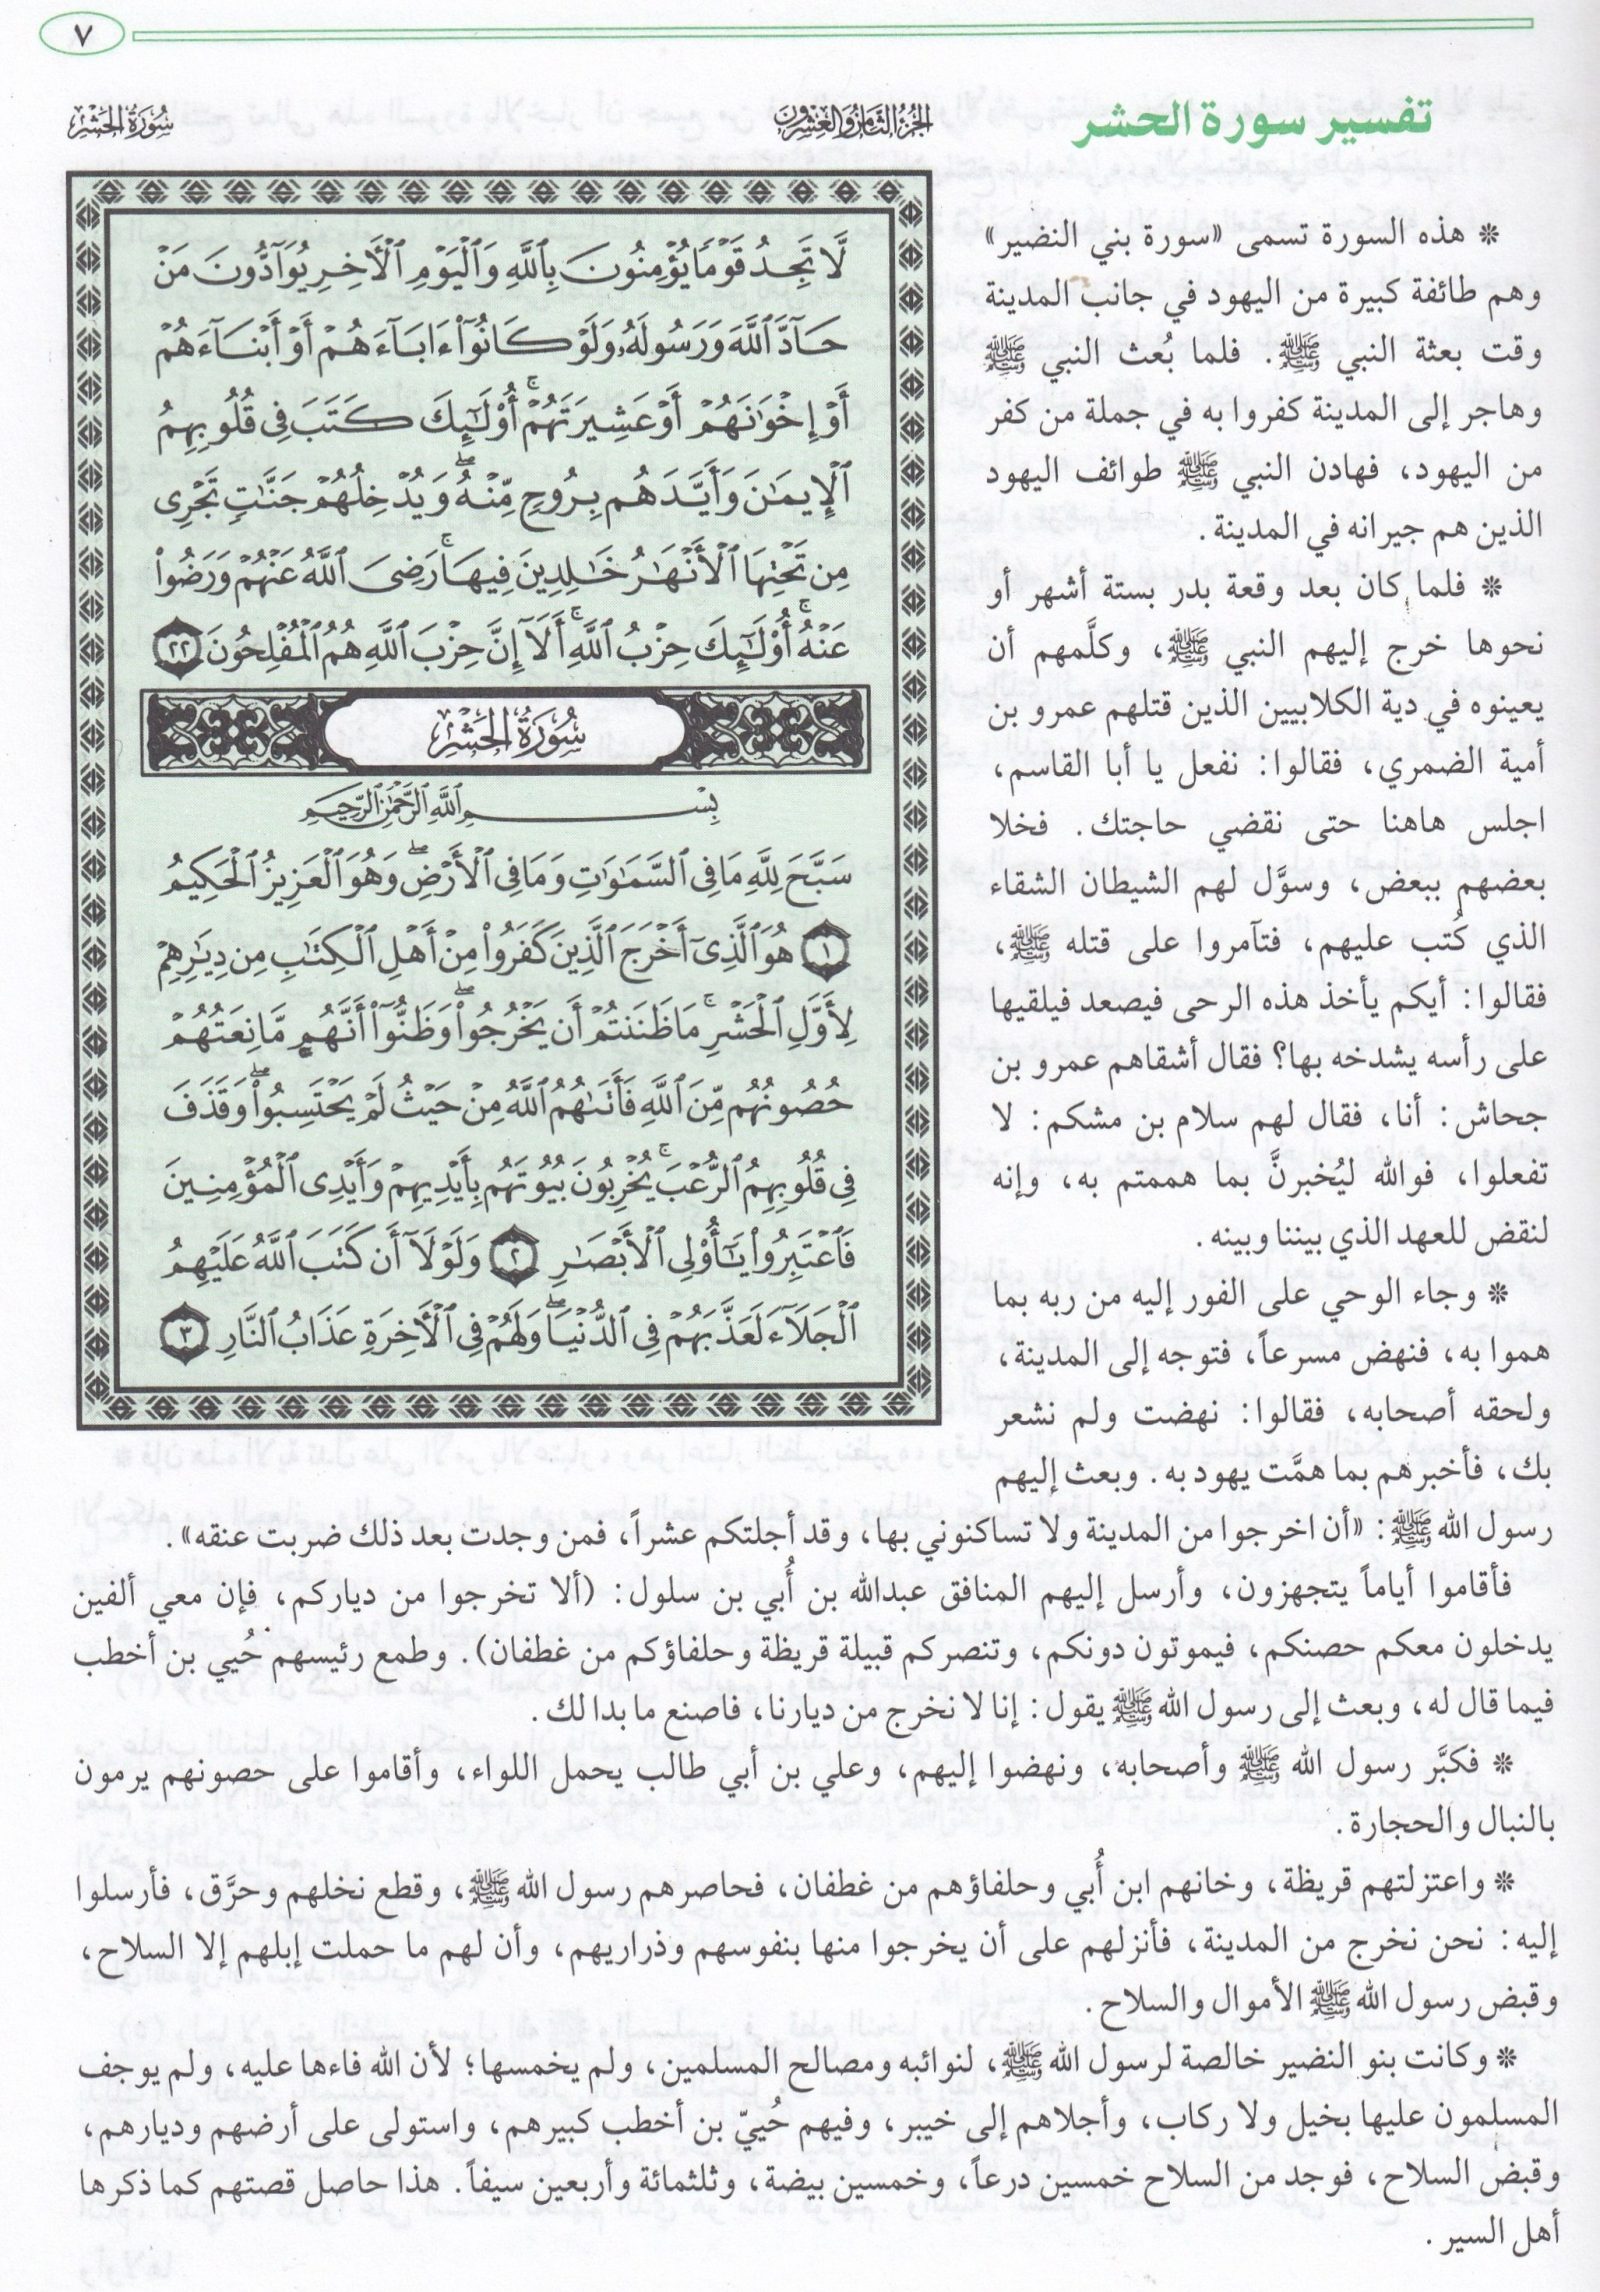 ٧
سُورَةُ الحَشْرِ
الجُزْءُ الثَّامِنُ وَالعِشْرُونَ
تفسير سورة الحشر
لَّا تَجِدُ قَوْمًا يُؤْمِنُونَ بِٱللَّهِ وَٱلْيَوْمِ ٱلْأَخِرِ يُوَآدُّونَ مَنْ
حَآدَّ ٱللَّهَ وَرَسُولَهُۥ وَلَوْ كَانُوٓا۟ ءَابَآءَهُمْ أَوْ أَبْنَآءَهُمْ
أَوْ إِخْوَٰنَهُمْ أَوْ عَشِيرَتَهُمْ ۚ أُو۟لَٰٓئِكَ كَتَبَ فِى قُلُوبِهِمُ
ٱلْإِيمَٰنَ وَأَيَّدَهُم بِرُوحٍ مِّنْهُ ۖ وَيُدْخِلُهُمْ جَنَّٰتٍ تَجْرِى
مِن تَحْتِهَا ٱلْأَنْهَٰرُ خَٰلِدِينَ فِيهَا ۚ رَضِىَ ٱللَّهُ عَنْهُمْ وَرَضُوا۟
عَنْهُ ۚ أُو۟لَٰٓئِكَ حِزْبُ ٱللَّهِ ۚ أَلَآ إِنَّ حِزْبَ ٱللَّهِ هُمُ ٱلْمُفْلِحُونَ ٢٢
سُورَةُ الحَشْرِ
بِسْمِ اللَّهِ الرَّحْمَٰنِ الرَّحِيمِ
سَبَّحَ لِلَّهِ مَا فِى ٱلسَّمَٰوَٰتِ وَمَا فِى ٱلْأَرْضِ ۖ وَهُوَ ٱلْعَزِيزُ ٱلْحَكِيمُ
١ هُوَ ٱلَّذِىٓ أَخْرَجَ ٱلَّذِينَ كَفَرُوا۟ مِنْ أَهْلِ ٱلْكِتَٰبِ مِن دِيَٰرِهِمْ
لِأَوَّلِ ٱلْحَشْرِ ۚ مَا ظَنَنتُمْ أَن يَخْرُجُوا۟ ۖ وَظَنُّوٓا۟ أَنَّهُم مَّانِعَتُهُمْ
حُصُونُهُم مِّنَ ٱللَّهِ فَأَتَىٰهُمُ ٱللَّهُ مِنْ حَيْثُ لَمْ يَحْتَسِبُوا۟ ۖ وَقَذَفَ
فِى قُلُوبِهِمُ ٱلرُّعْبَ ۚ يُخْرِبُونَ بُيُوتَهُم بِأَيْدِيهِمْ وَأَيْدِى ٱلْمُؤْمِنِينَ
فَٱعْتَبِرُوا۟ يَٰٓأُو۟لِى ٱلْأَبْصَٰرِ ٢ وَلَوْلَآ أَن كَتَبَ ٱللَّهُ عَلَيْهِمُ
ٱلْجَلَآءَ لَعَذَّبَهُمْ فِى ٱلدُّنْيَا ۖ وَلَهُمْ فِى ٱلْأَخِرَةِ عَذَابُ ٱلنَّارِ ٣
* هذه السورة تسمى «سورة بني النضير»
وهم طائفة كبيرة من اليهود في جانب المدينة
وقت بعثة النبي ﷺ. فلما بُعث النبي ﷺ
وهاجر إلى المدينة كفروا به في جملة من كفر
من اليهود، فهادن النبي ﷺ طوائف اليهود
الذين هم جيرانه في المدينة.
* فلما كان بعد وقعة بدر بستة أشهر أو
نحوها خرج إليهم النبي ﷺ، وكلَّمهم أن
يعينوه في دية الكلابيين الذين قتلهم عمرو بن
أمية الضمري، فقالوا: نفعل يا أبا القاسم،
اجلس هاهنا حتى نقضي حاجتك. فخلا
بعضهم ببعض، وسوَّل لهم الشيطان الشقاء
الذي كُتب عليهم، فتآمروا على قتله ﷺ،
فقالوا: أيكم يأخذ هذه الرحى فيصعد فيلقيها
على رأسه يشدخه بها؟ فقال أشقاهم عمرو بن
جحاش: أنا، فقال لهم سلام بن مشكم: لا
تفعلوا، فوالله ليُخبرنَّ بما هممتم به، وإنه
لنقض للعهد الذي بيننا وبينه.
* وجاء الوحي على الفور إليه من ربه بما
هموا به، فنهض مسرعاً، فتوجه إلى المدينة،
ولحقه أصحابه، فقالوا: نهضت ولم نشعر
بك، فأخبرهم بما همَّت يهود به. وبعث إليهم
رسول الله ﷺ: «أن اخرجوا من المدينة ولا تساكنوني بها، وقد أجلتكم عشراً، فمن وجدت بعد ذلك ضربت عنقه».
فأقاموا أياماً يتجهزون، وأرسل إليهم المنافق عبدالله بن أُبي بن سلول: (ألا تخرجوا من دياركم، فإن معي ألفين
يدخلون معكم حصنكم، فيموتون دونكم، وتنصركم قبيلة قريظة وحلفاؤكم من غطفان). وطمع رئيسهم حُيي بن أخطب
فيما قال له، وبعث إلى رسول الله ﷺ يقول: إنا لا نخرج من ديارنا، فاصنع ما بدا لك.
* فكبَّر رسول الله ﷺ وأصحابه، ونهضوا إليهم، وعلي بن أبي طالب يحمل اللواء، وأقاموا على حصونهم يرمون
بالنبال والحجارة.
* واعتزلتهم قريظة، وخانهم ابن أُبي وحلفاؤهم من غطفان، فحاصرهم رسول الله ﷺ، وقطع نخلهم وحرَّق، فأرسلوا
إليه: نحن نخرج من المدينة، فأنزلهم على أن يخرجوا منها بنفوسهم وذراريهم، وأن لهم ما حملت إبلهم إلا السلاح،
وقبض رسول الله ﷺ الأموال والسلاح.
* وكانت بنو النضير خالصة لرسول الله ﷺ، لنوائبه ومصالح المسلمين، ولم يخمسها؛ لأن الله فاءها عليه، ولم يوجف
المسلمون عليها بخيل ولا ركاب، وأجلاهم إلى خيبر، وفيهم حُييّ بن أخطب كبيرهم، واستولى على أرضهم وديارهم،
وقبض السلاح، فوجد من السلاح خمسين درعاً، وخمسين بيضة، وثلثمائة وأربعين سيفاً. هذا حاصل قصتهم كما ذكرها
أهل السير.